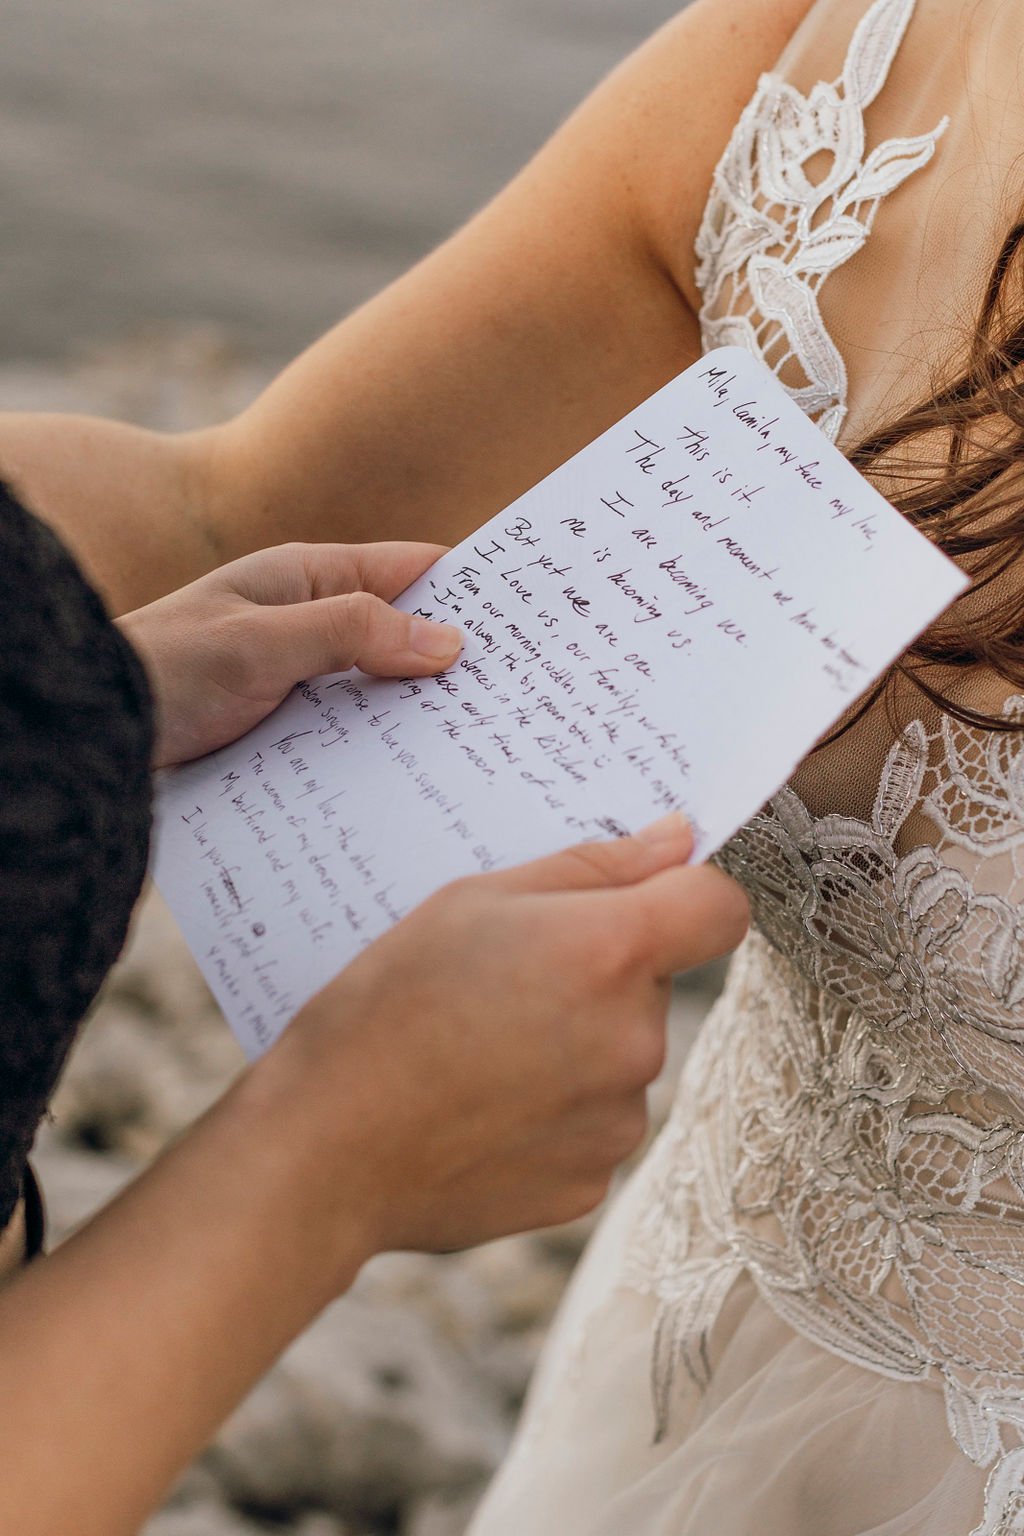 Mila, Camila, my face my love,
this is it.
The day and moment we have been
I are becoming we.
me is becoming us.
But yet we are one.
I Love us, our family, our future
From our morning cuddles, to the late night
- I'm always the big spoon btw. :)
dances in the kitchen.
those early times of us at
ring at the moon.
promise to love you, support you and
ndom singing.
You are my love, the
The woman of my dreams,
My bestfriend and my wife.
I love you
and fiercely